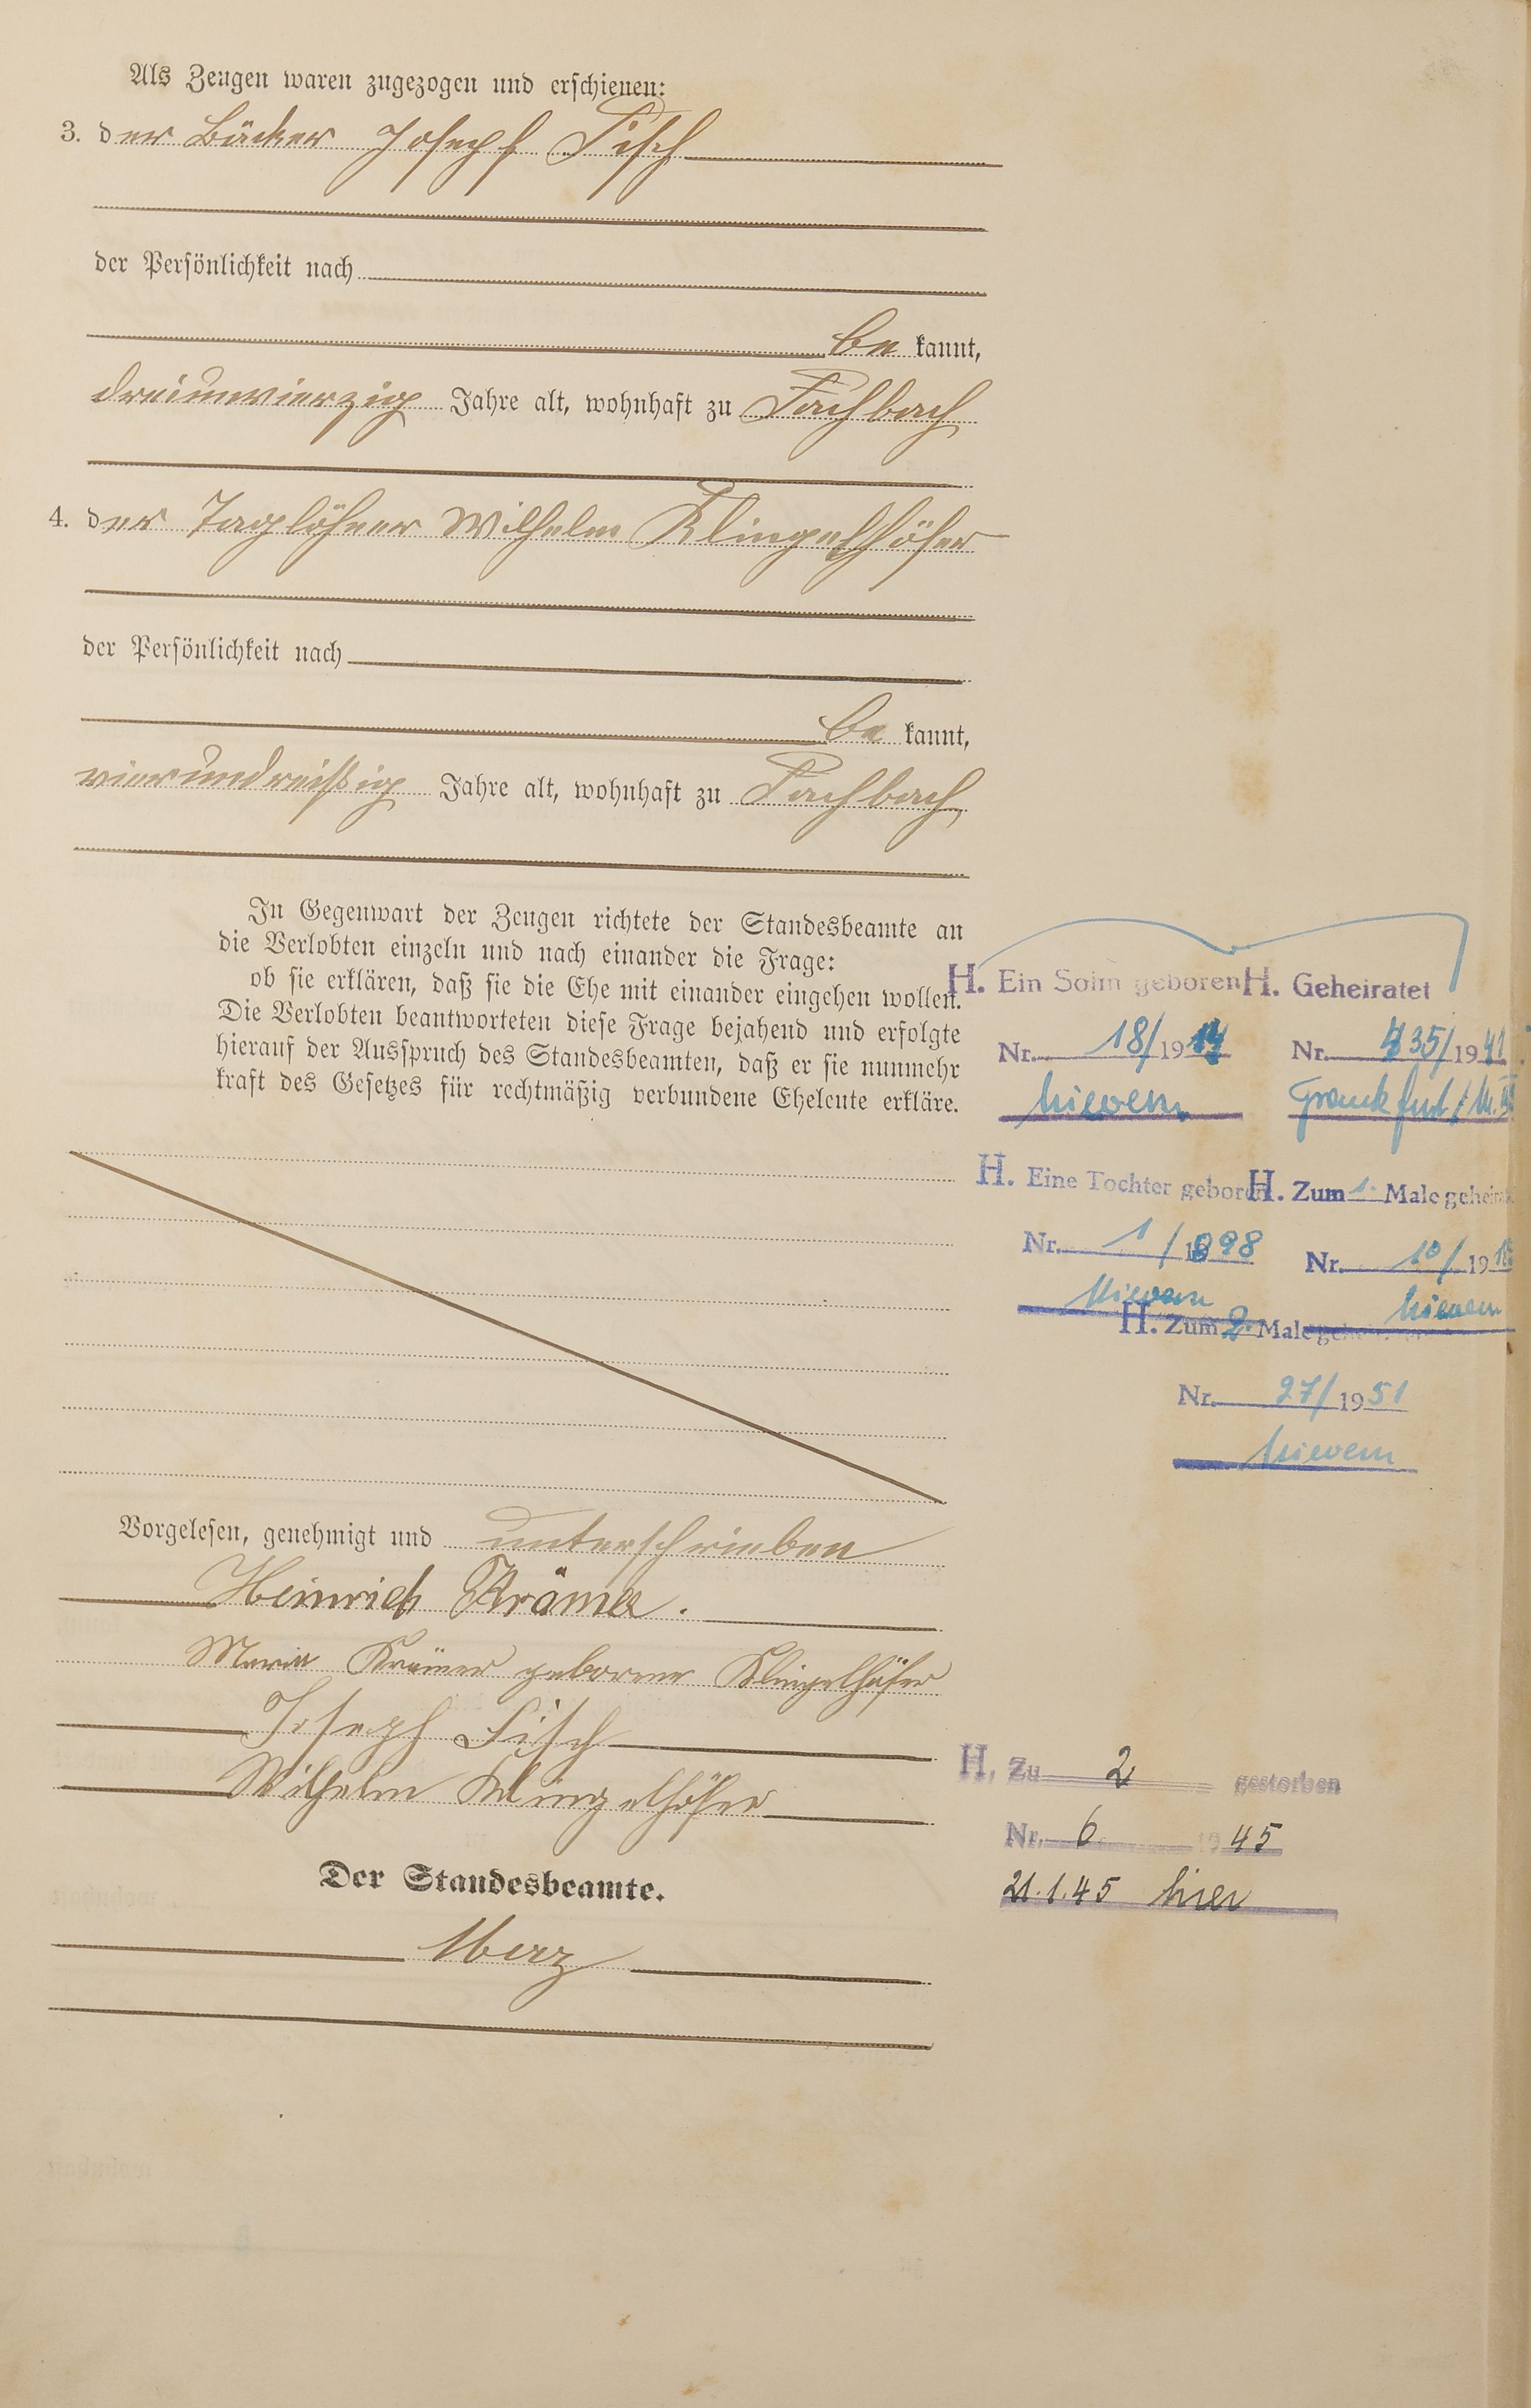 Als Zeugen waren zugezogen und erschienen:
3. der Bäcker Joseph Fisch
der Persönlichkeit nach
be kannt,
dreiunvierzig Jahre alt, wohnhaft zu Fachbach
4. der Taglöhner Wilhelm Klingelhöfer
der Persönlichkeit nach
be kannt,
vierundreißig Jahre alt, wohnhaft zu Fachbach
In Gegenwart der Zeugen richtete der Standesbeamte an
die Verlobten einzeln und nach einander die Frage:
ob sie erklären, daß sie die Ehe mit einander eingehen wollen.
Die Verlobten beantworteten diese Frage bejahend und erfolgte
hierauf der Ausspruch des Standesbeamten, daß er sie nunmehr
kraft des Gesetzes für rechtmäßig verbundene Eheleute erkläre.
H. Ein Sohn geboren
Nr. 18/1914
Nievern
H. Geheiratet
Nr. 435/1941
Frankfurt/M.
H. Eine Tochter geboren
Nr. 1/1898
Nievern
H. Zum 1. Male geheiratet
Nr. 10/19
Nievern
H. Zum 2. Male geheiratet
Nr. 27/1951
Nievern
Vorgelesen, genehmigt und unterschrieben
Heinrich Krämer.
Maria Krämer geborene Klingelhöfer
Joseph Fisch
Wilhelm Klingelhöfer
Der Standesbeamte.
Merz
H. Zu 2 gestorben
Nr. 6 1945
21.1.45 hier